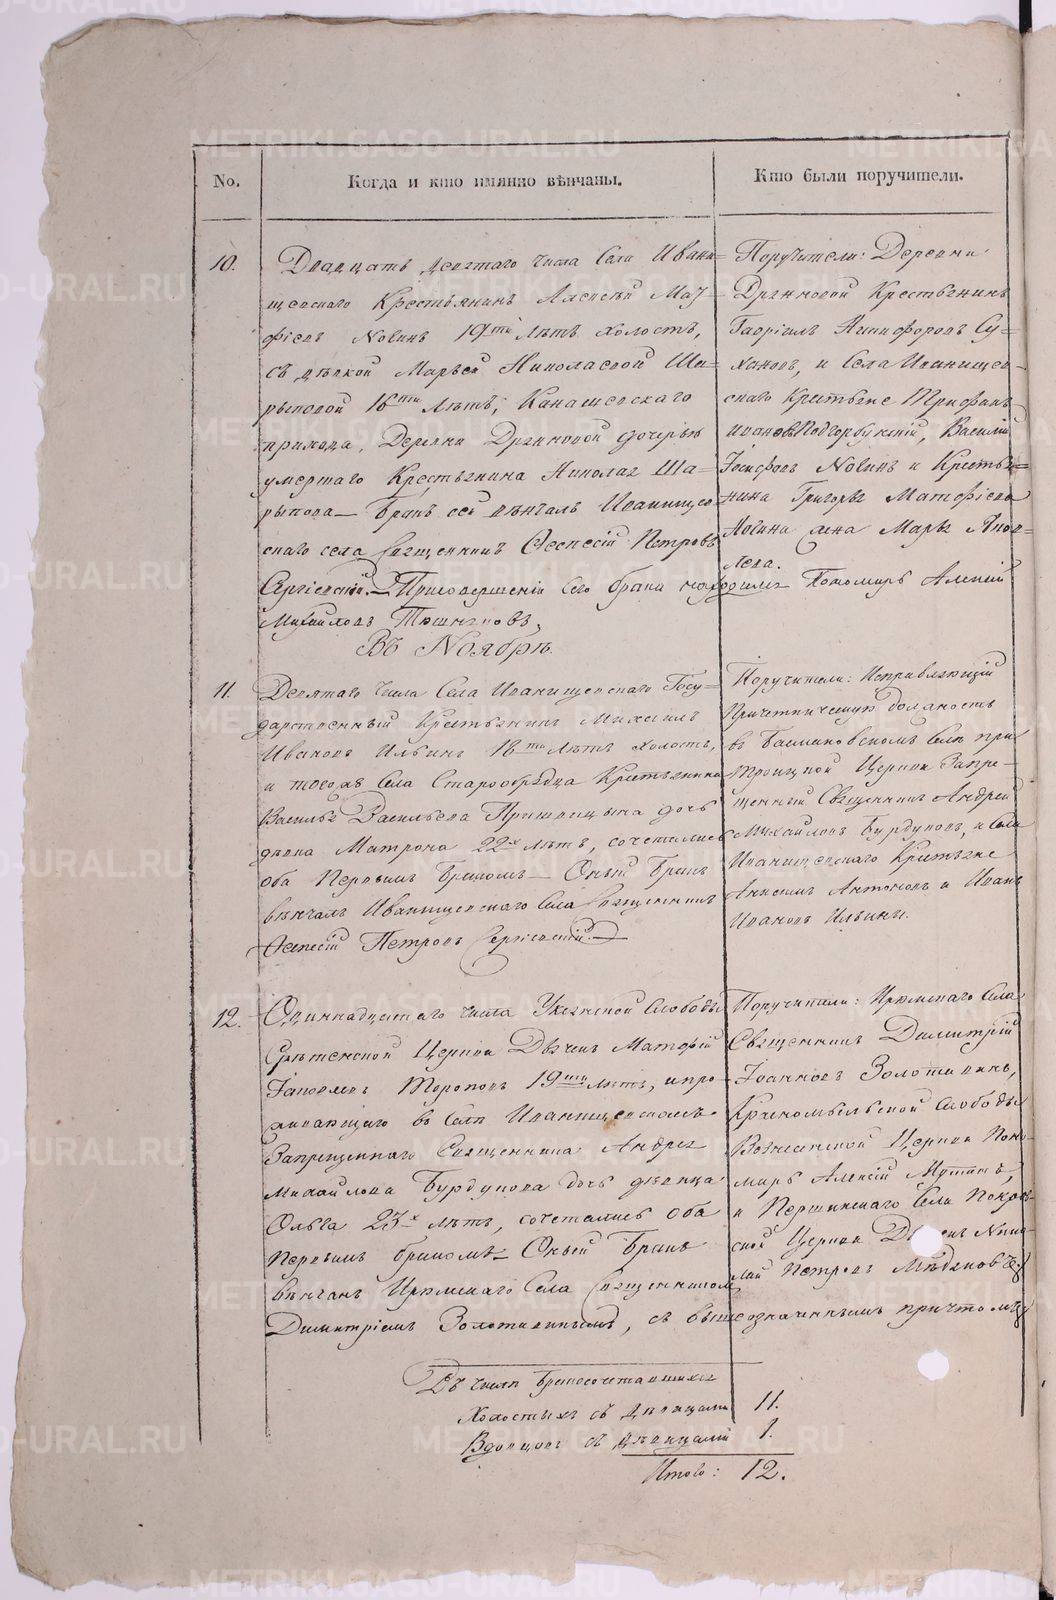 No.
Когда и кто имянно вѣнчаны.
Кто были поручители.
10.
Двадцать девятаго числа Села Ивани=
щевскаго Крестьянинъ Алексѣй Мат=
фіевъ Ловинъ 19ти лѣтъ холостъ,
съ дѣвкой Марьей Николаевой Ша=
рыповой 16ти лѣтъ, Канашевскаго
прихода, Деревни Дрянновой дочерью
умершаго Крестьянина Николая Ша=
рыпова — Бракъ сей вѣнчалъ Иванищев
скаго села Священникъ Петровъ
Сергіевскій. — При совершеніи сего брака находился Пономарь Алексій
Михайловъ Тюшняковъ.
Поручители: Деревни
Дрянновой Крестьянинъ
Гавріилъ Никифоровъ Су=
хановъ, и Села Иванищев=
скаго Крестьяне Трифонъ
Ивановъ Подгорбунскій, Василій
Іосифовъ Ловинъ и Крестья=
нина Григорья Матфіева
Ловина жена Марья Яков=
лева.
Въ Ноябрѣ.
11.
Девятаго числа Села Иванищевскаго Госу=
дарственный Крестьянинъ Михаилъ
Ивановъ Ильинъ 18ти лѣтъ холостъ,
и тогожъ Села Старообрядца Крестьянина
Василья Васильева дочь
дѣвка Матрона 22хъ лѣтъ, сочетались
оба первымъ бракомъ — Оный Бракъ
вѣнчалъ Иванищевскаго Села Священникъ
Петровъ Сергіевскій. —
Поручители: Исправляющій
Причетническую должность
въ Басмановскомъ Селѣ при
Троицкой Церкви Запре=
щенный Священникъ Андрей
Михайловъ Бурдуковъ, и Села
Иванищевскаго Крестьяне
Анисимъ Антоновъ и Иванъ
Ивановъ Ильины.
12.
Одиннадцатаго числа Уксянской Слободы
Срѣтенской Церкви Дьячекъ Матфій
Іаковлевъ Тороповъ 19ти лѣтъ, и про=
живающаго въ Селѣ Иванищевскомъ
Запрещеннаго Священника Андрея
Михайлова Бурдукова дочь дѣвица
Ольга 23хъ лѣтъ, сочетались оба
первымъ бракомъ — Оный Бракъ
вѣнчанъ Ирюмскаго Села Священникомъ
Димитріемъ Золотавинымъ, съ вышеозначеннымъ причтомъ.
Поручители: Ирюмскаго Села
Священникъ Димитрій
Іоанновъ Золотавинъ,
Красномыльской Слободы
Вознесенской Церкви Поно=
марь Алексій
и Першинскаго Села Покров=
ской Церкви Нико=
лай Петровъ
Въ числѣ бракосочетавшихся
Холостыхъ съ дѣвицами 11.
Вдовцовъ съ дѣвицами 1.
Итого: 12.